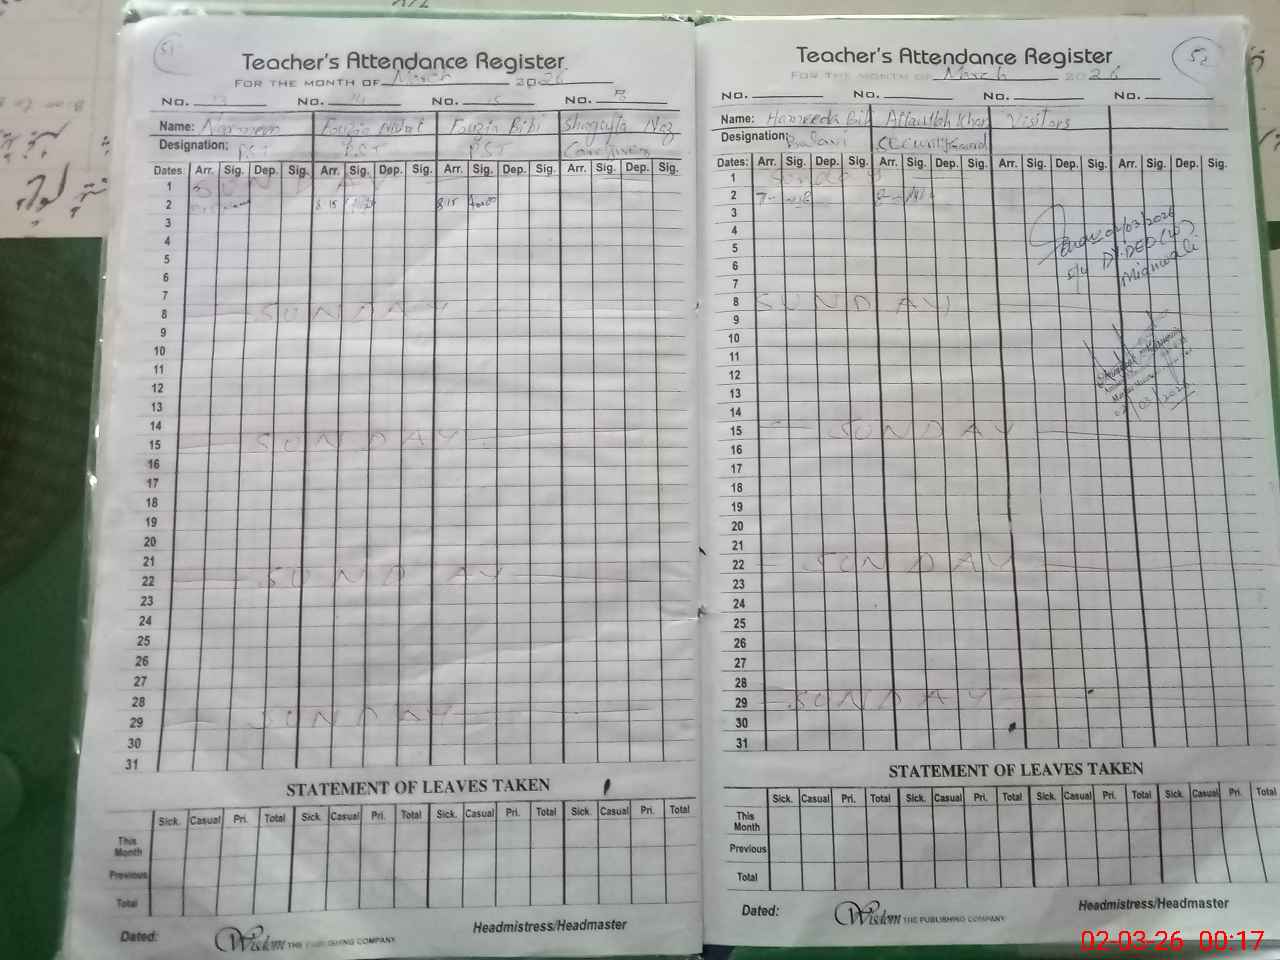 51
Teacher's Attendance Register
FOR THE MONTH OF March 2026
No. 13 No. 14 No. 15 No.
Name: Fouzia Bibi Shagufta Naz
Designation: PST PST PST Caregiver
Dates Arr. Sig. Dep. Sig. Arr. Sig. Dep. Sig. Arr. Sig. Dep. Sig. Arr. Sig. Dep. Sig.
1 SUNDAY
2 8:15 8:15
3
4
5
6
7
8 SUNDAY
9
10
11
12
13
14
15 SUNDAY
16
17
18
19
20
21
22 SUNDAY
23
24
25
26
27
28
29 SUNDAY
30
31
STATEMENT OF LEAVES TAKEN
Sick. Casual Pri. Total Sick. Casual Pri. Total Sick. Casual Pri. Total Sick. Casual Pri. Total
This Month
Previous
Total
Dated: Wisdom THE PUBLISHING COMPANY Headmistress/Headmaster
52
Teacher's Attendance Register
FOR THE MONTH OF March 2026
No. No. No. No.
Name: Hameeda Bibi Attaullah Khan Visitors
Designation: Security Guard
Dates: Arr. Sig. Dep. Sig. Arr. Sig. Dep. Sig. Arr. Sig. Dep. Sig. Arr. Sig. Dep. Sig.
1 SUNDAY
2
3
4
5
6
7
8 SUNDAY
9
10
11
12
13
14
15 SUNDAY
16
17
18
19
20
21
22 SUNDAY
23
24
25
26
27
28
29 SUNDAY
30
31
02/03/2026
DY.DEO (W)
Mianwali
02/03/2026
STATEMENT OF LEAVES TAKEN
Sick. Casual Pri. Total Sick. Casual Pri. Total Sick. Casual Pri. Total Sick. Casual Pri. Total
This Month
Previous
Total
Dated: Wisdom THE PUBLISHING COMPANY Headmistress/Headmaster
02-03-26 00:17